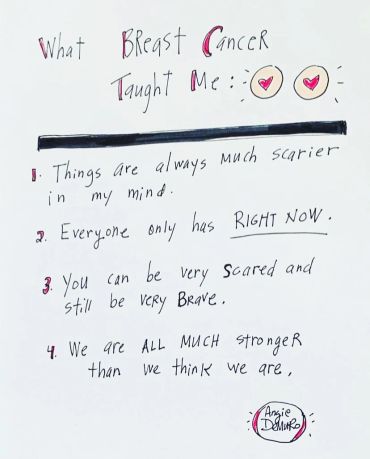 What Breast Cancer
Taught Me:
1. Things are always much scarier
in my mind.
2. Everyone only has RIGHT NOW.
3. You can be very scared and
still be very Brave.
4. We are ALL MUCH stronger
than we think we are,
Angie
DeMuro